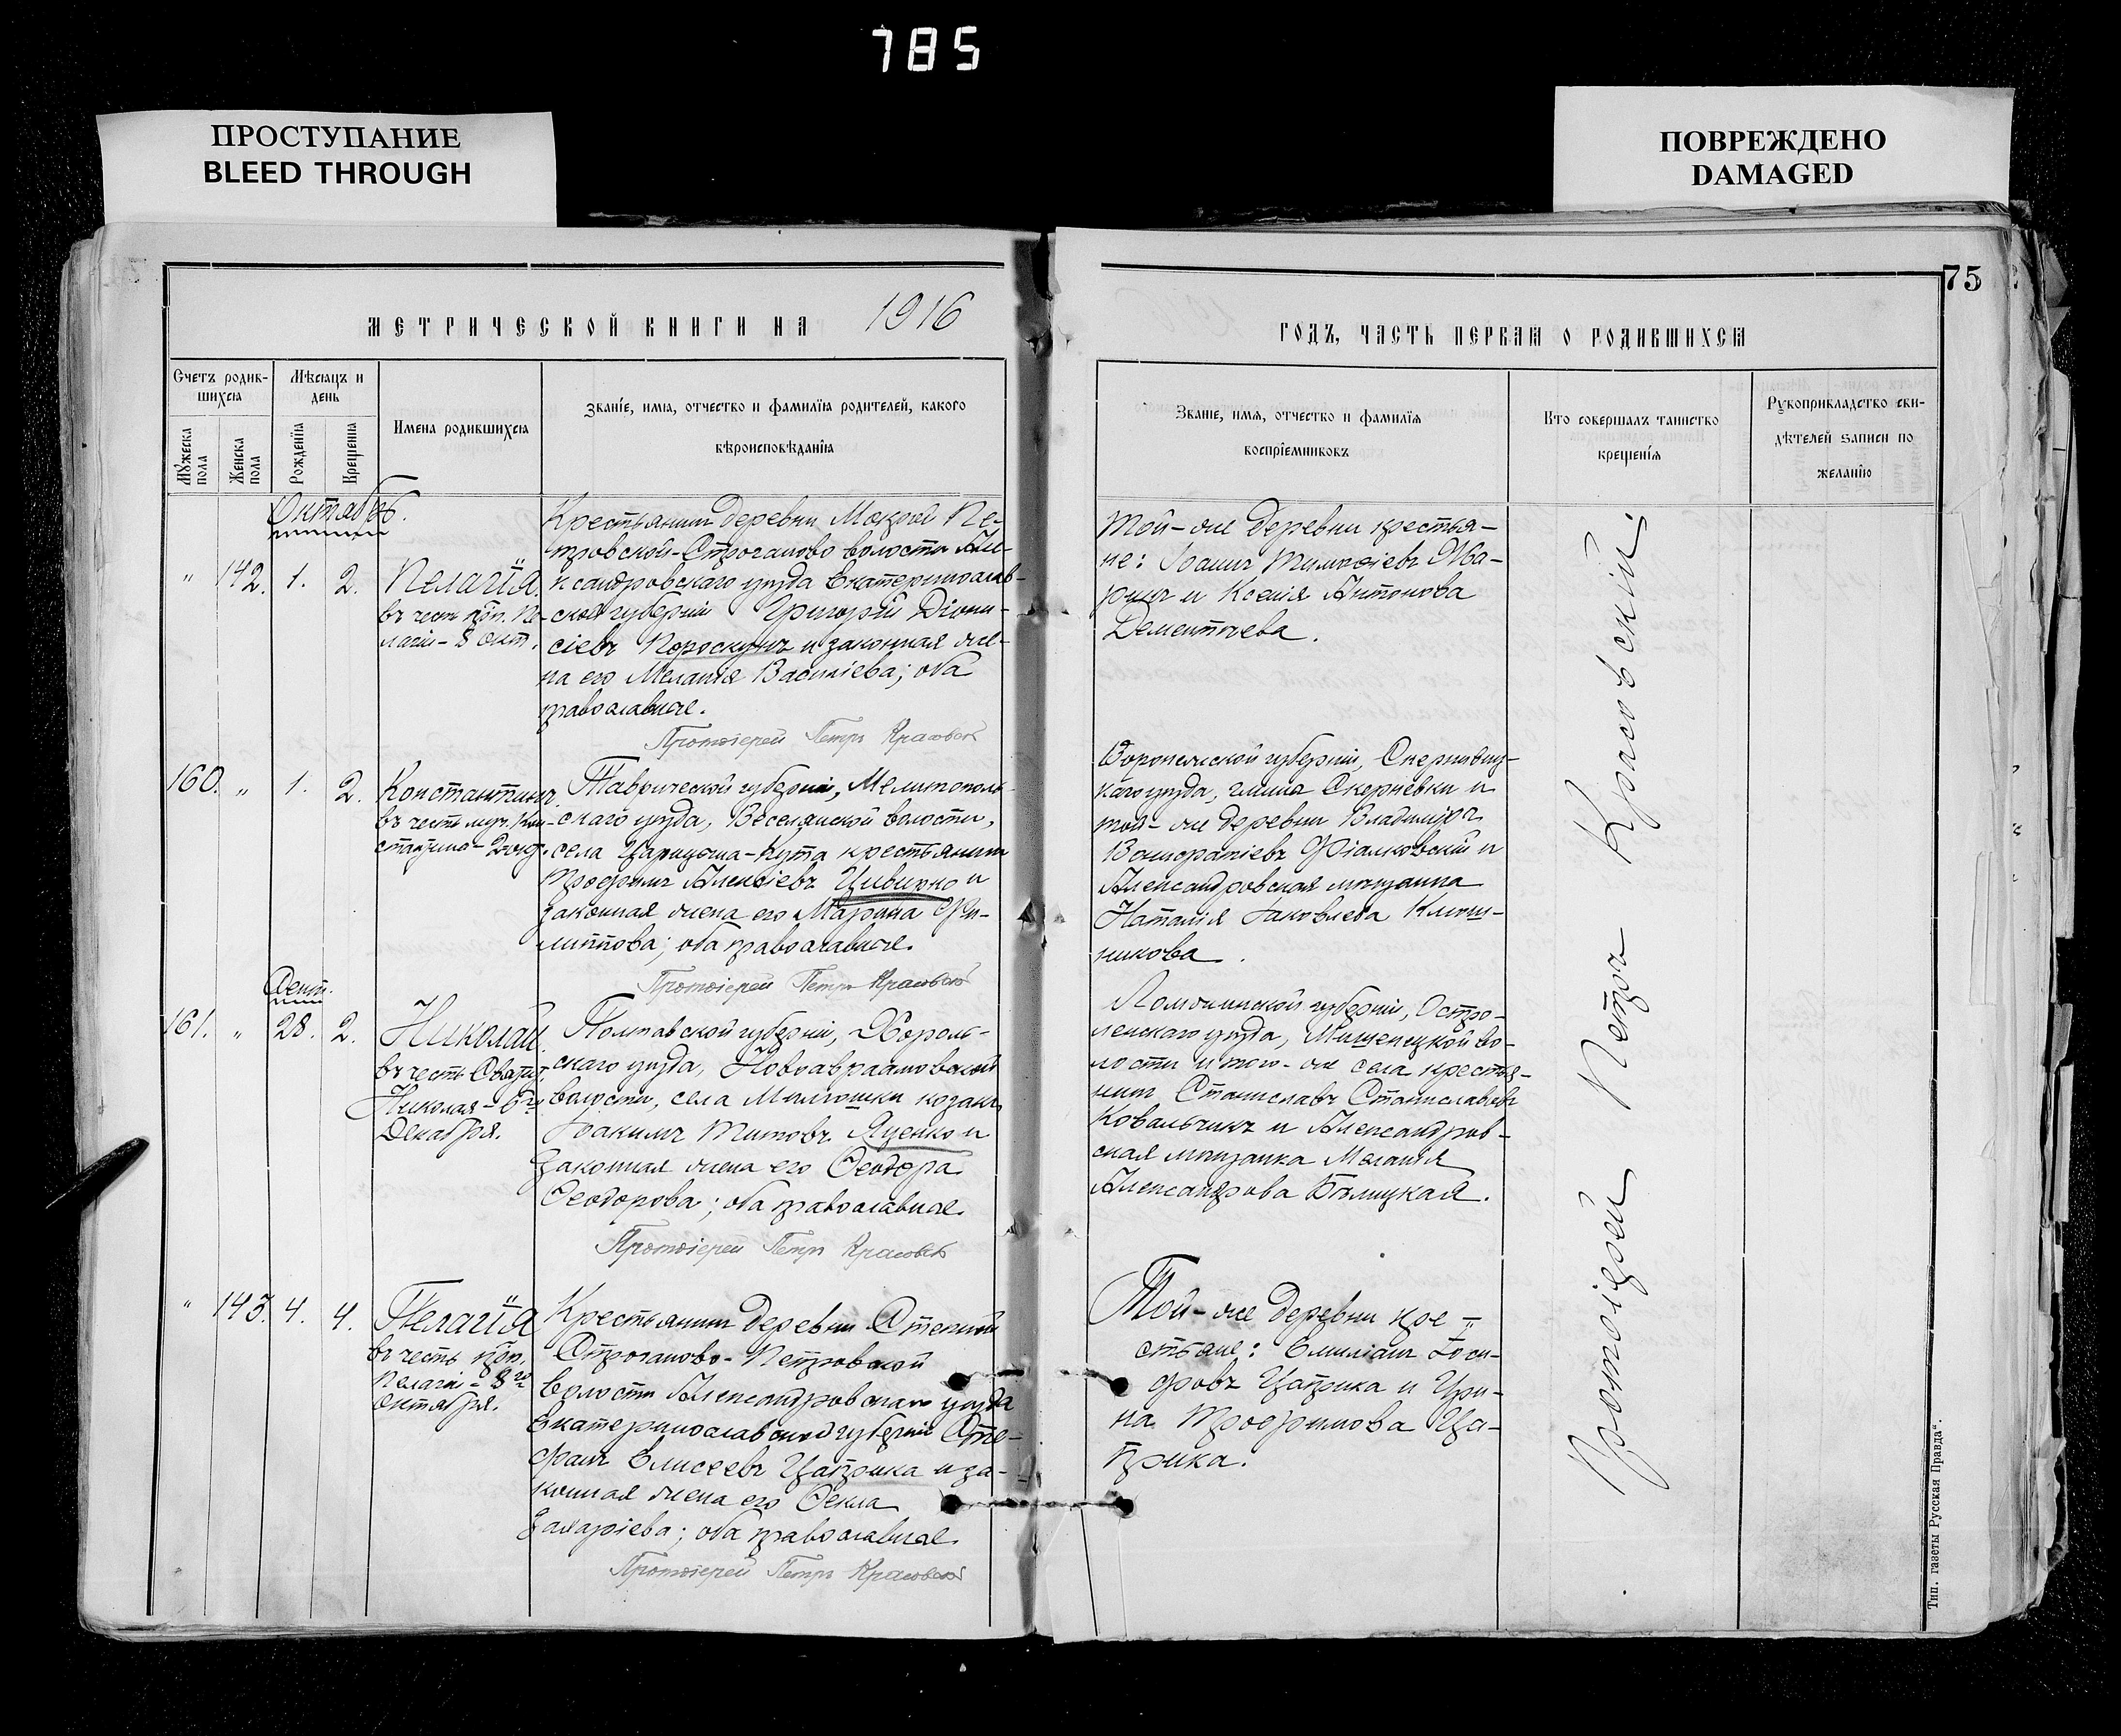 785
ПРОСТУПАНИЕ
BLEED THROUGH
ПОВРЕЖДЕНО
DAMAGED
75
МЕТРИЧЕСКОЙ КНИГИ НА 1916
ГОДЪ, ЧАСТЬ ПЕРВАЯ О РОДИВШИХСЯ
Счетъ родив-
шихся
Мужеска пола
Женска пола
Мѣсяцъ и
день
Рожденїя
Крещенїя
Имена родившихся
Званїе, имя, отчество и фамилїя родителей, какого
вѣроисповѣданїя
Званїе, имя, отчество и фамилїя
воспрїемниковъ
Кто совершалъ таинство
крещенїя
Рукоприкладство сви-
дѣтелей записи по
желанїю
Октябрь.
" 142. 1. 2.
Пелагія
въ честь прп. Пе-
лагіи - 8 окт.
Крестьянинъ деревни Мокрой Пе-
тровской-Строганово волости Але-
ксандровскаго уѣзда Екатеринослав-
ской губерніи Григорій Діони-
сіевъ и законная же-
на его Меланія Василіева; оба
православные.
Протоіерей Петръ Красовскій
Той-же деревни крестья-
не: Іоаннъ Тимофіевъ
и Ксенія Антонова
Дементьева.
160. " 1. 2.
Константинъ
въ честь муч. Кон-
стантина - 2 окт.
Таврической губерніи, Мелитополь-
скаго уѣзда, Веселянской волости,
села Царицына-Кута крестьянинъ
Трофимъ Алексіевъ и
законная жена его Марина Фи-
липпова; оба православные.
Протоіерей Петръ Красовскій
губерніи,
уѣзда, гмины Скерневки и
той-же деревни Владиміръ
Фіалковскій и
Александровская мѣщанка
Наталія Іаковлева Ключ-
никова.
Сент.
161. " 28. 2.
Николай
въ честь Святит.
Николая - 6го
Декабря.
Полтавской губерніи, Хороль-
скаго уѣзда, Новоаврамовской
волости, села козакъ
Іоакимъ Титовъ Яценко и
законная жена его Ѳеодора
Ѳеодорова; оба православные.
Протоіерей Петръ Красовскій
Ломжинской губерніи, Остро-
ленскаго уѣзда, во-
лости и того-же села крестья-
нинъ Станиславъ Станиславовъ
Ковальчикъ и Александров-
ская мѣщанка Меланія
Александрова Бѣлицкая.
" 143. 4. 4.
Пелагія
въ честь прп.
Пелагіи - 8го
Октября.
Крестьянинъ деревни Степной
Строганово-Петровской
волости Александровскаго уѣзда
Екатеринославской губерніи Сте-
фанъ Елисеевъ Цаприка и за-
конная жена его Ѳекла
Захаріева; оба православные.
Протоіерей Петръ Красовскій
Той-же деревни кре-
стьяне: Емиліанъ Іоси-
фовъ Цаприка и Ири-
на Трофимова Ца-
прика.
Протоіерей Петръ Красовскій.
Тип. газеты Русская Правда“.